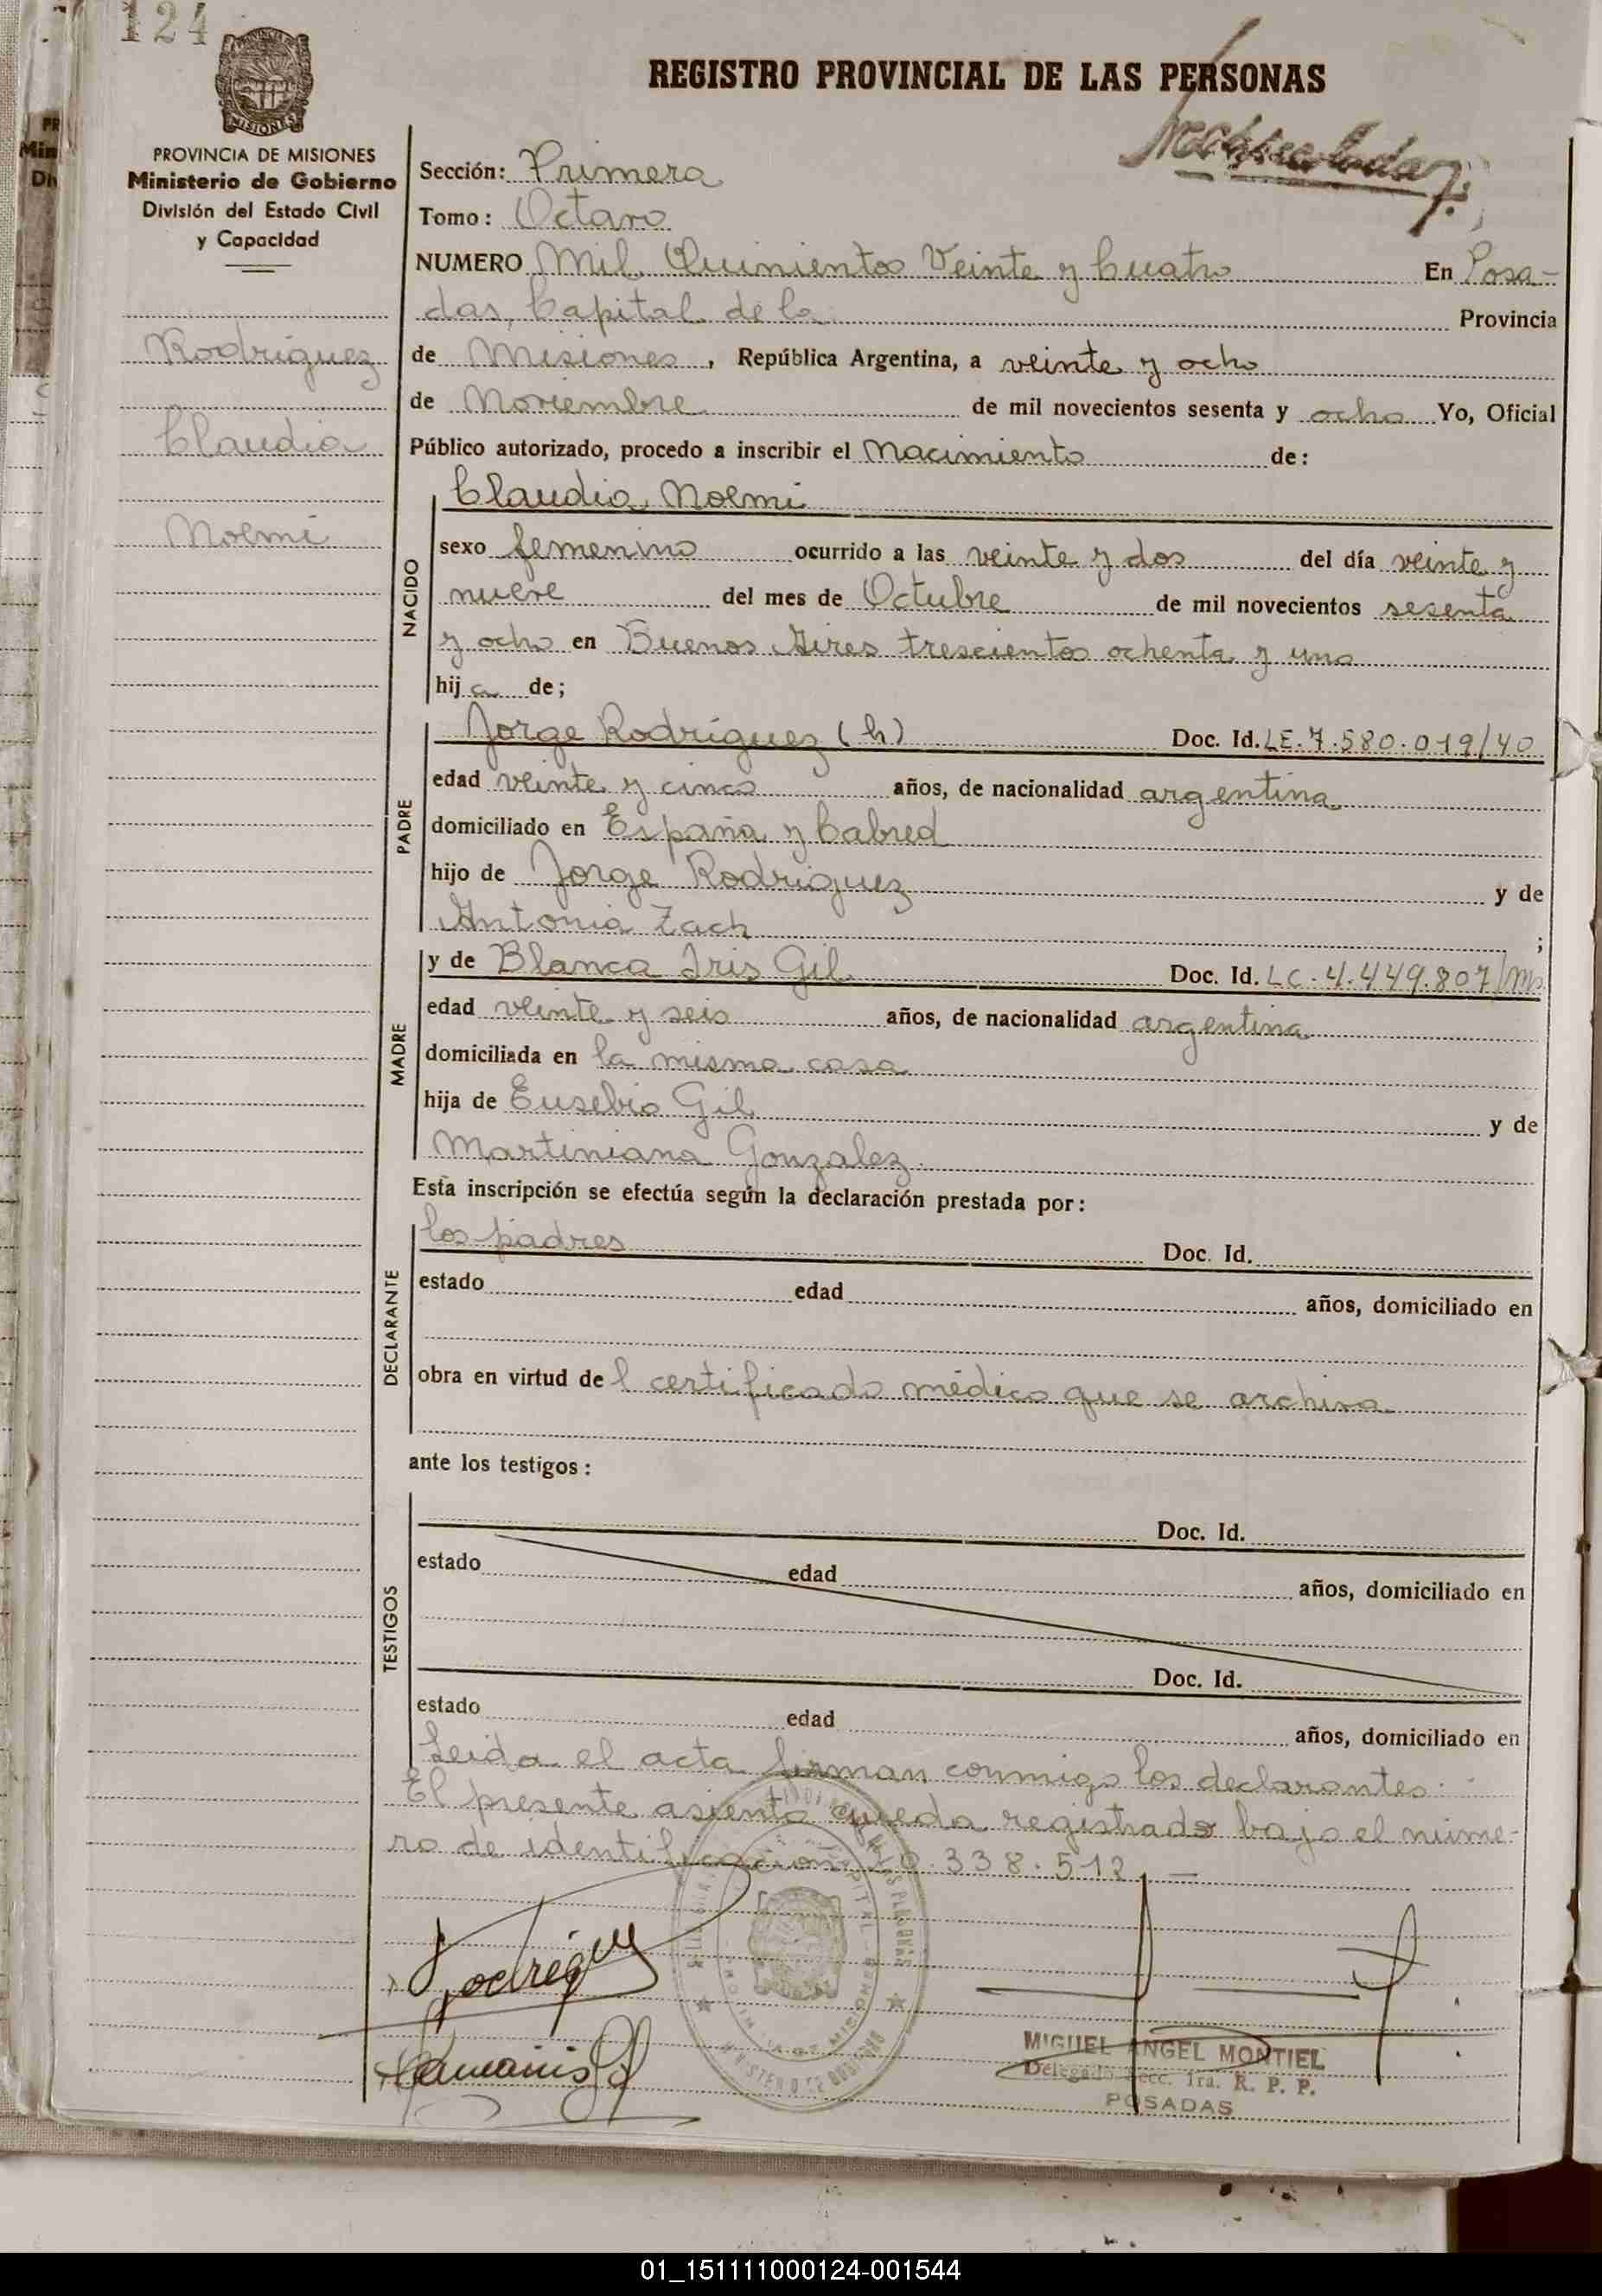 124
REGISTRO PROVINCIAL DE LAS PERSONAS
MISIONES
PROVINCIA DE MISIONES
Ministerio de Gobierno
División del Estado Civil
y Capacidad
Rodríguez
Claudia
Noemi
Sección: Primera
Tomo: Octavo
NUMERO Mil Quinientos Veinte y Cuatro En Posa-
das, Capital de la Provincia
de Misiones, República Argentina, a veinte y ocho
de Noviembre de mil novecientos sesenta y ocho Yo, Oficial
Público autorizado, procedo a inscribir el Nacimiento de:
NACIDO
Claudia Noemi
sexo femenino ocurrido a las veinte y dos del día veinte y
nueve del mes de Octubre de mil novecientos sesenta
y ocho en Buenos Aires trescientos ochenta y uno
hija de;
PADRE
Jorge Rodríguez (h) Doc. Id. LE. 7.580.019/40
edad veinte y cinco años, de nacionalidad argentina
domiciliado en España y Cabred
hijo de Jorge Rodriguez y de
Antonia Zach ;
MADRE
y de Blanca Iris Gil Doc. Id. LC. 4.449.807/Ms
edad veinte y seis años, de nacionalidad argentina
domiciliada en la misma casa
hija de Eusebio Gil y de
Martiniana Gonzalez.
Esta inscripción se efectúa según la declaración prestada por:
DECLARANTE
los padres Doc. Id.
estado edad años, domiciliado en
obra en virtud del certificado médico que se archiva
ante los testigos:
TESTIGOS
Doc. Id.
estado edad años, domiciliado en
Doc. Id.
estado edad años, domiciliado en
Leida el acta firman conmigo los declarantes.
El presente asiento queda registrado bajo el núme-
ro de identificación 20.338.512 —
Rodríguez
MIGUEL ANGEL MONTIEL
Delegado Secc. 1ra. R. P. P.
POSADAS
01_151111000124-001544